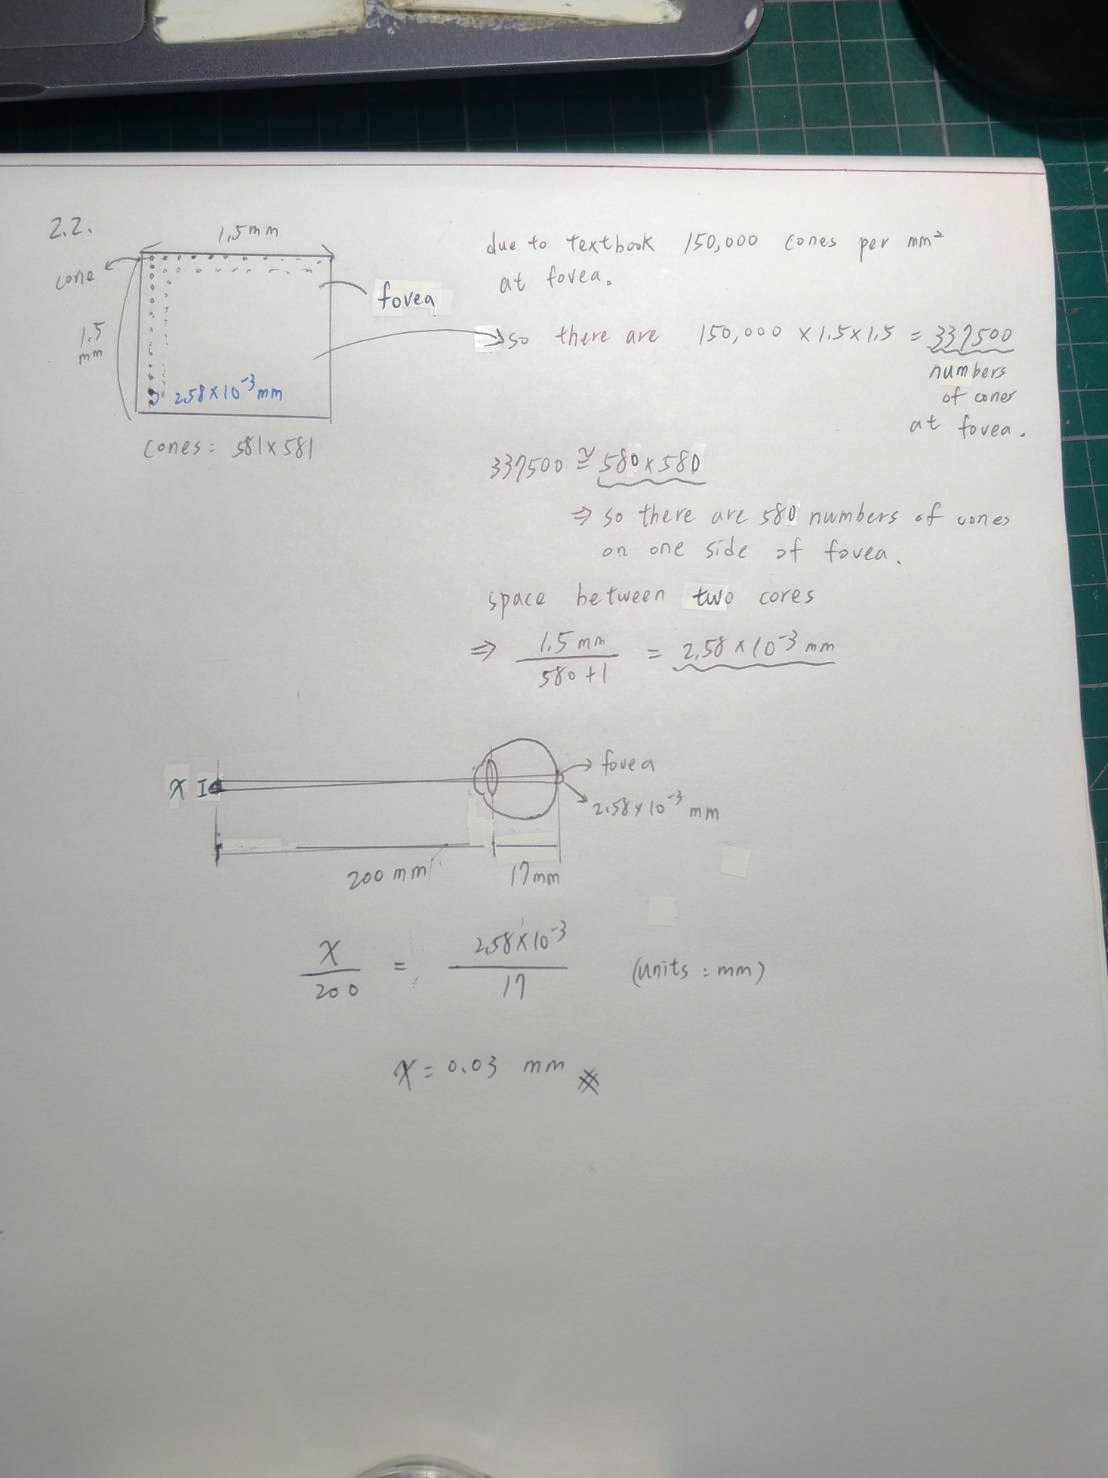 2.2.
1.5mm
cone
1.5
mm
fovea
2.58×10⁻³mm
cones: 581×581
due to textbook 150,000 cones per mm²
at fovea.
so there are 150,000 ×1.5×1.5 = 337500
numbers
of cones
at fovea.
337500 ≅ 580×580
⇒ so there are 580 numbers of cones
on one side of fovea.
space between two cores
⇒ 1.5 mm / 580+1 = 2.58×10⁻³ mm
x I
fovea
2.58×10⁻³ mm
200 mm
17mm
x / 200 = 2.58×10⁻³ / 17 (units: mm)
x = 0.03 mm